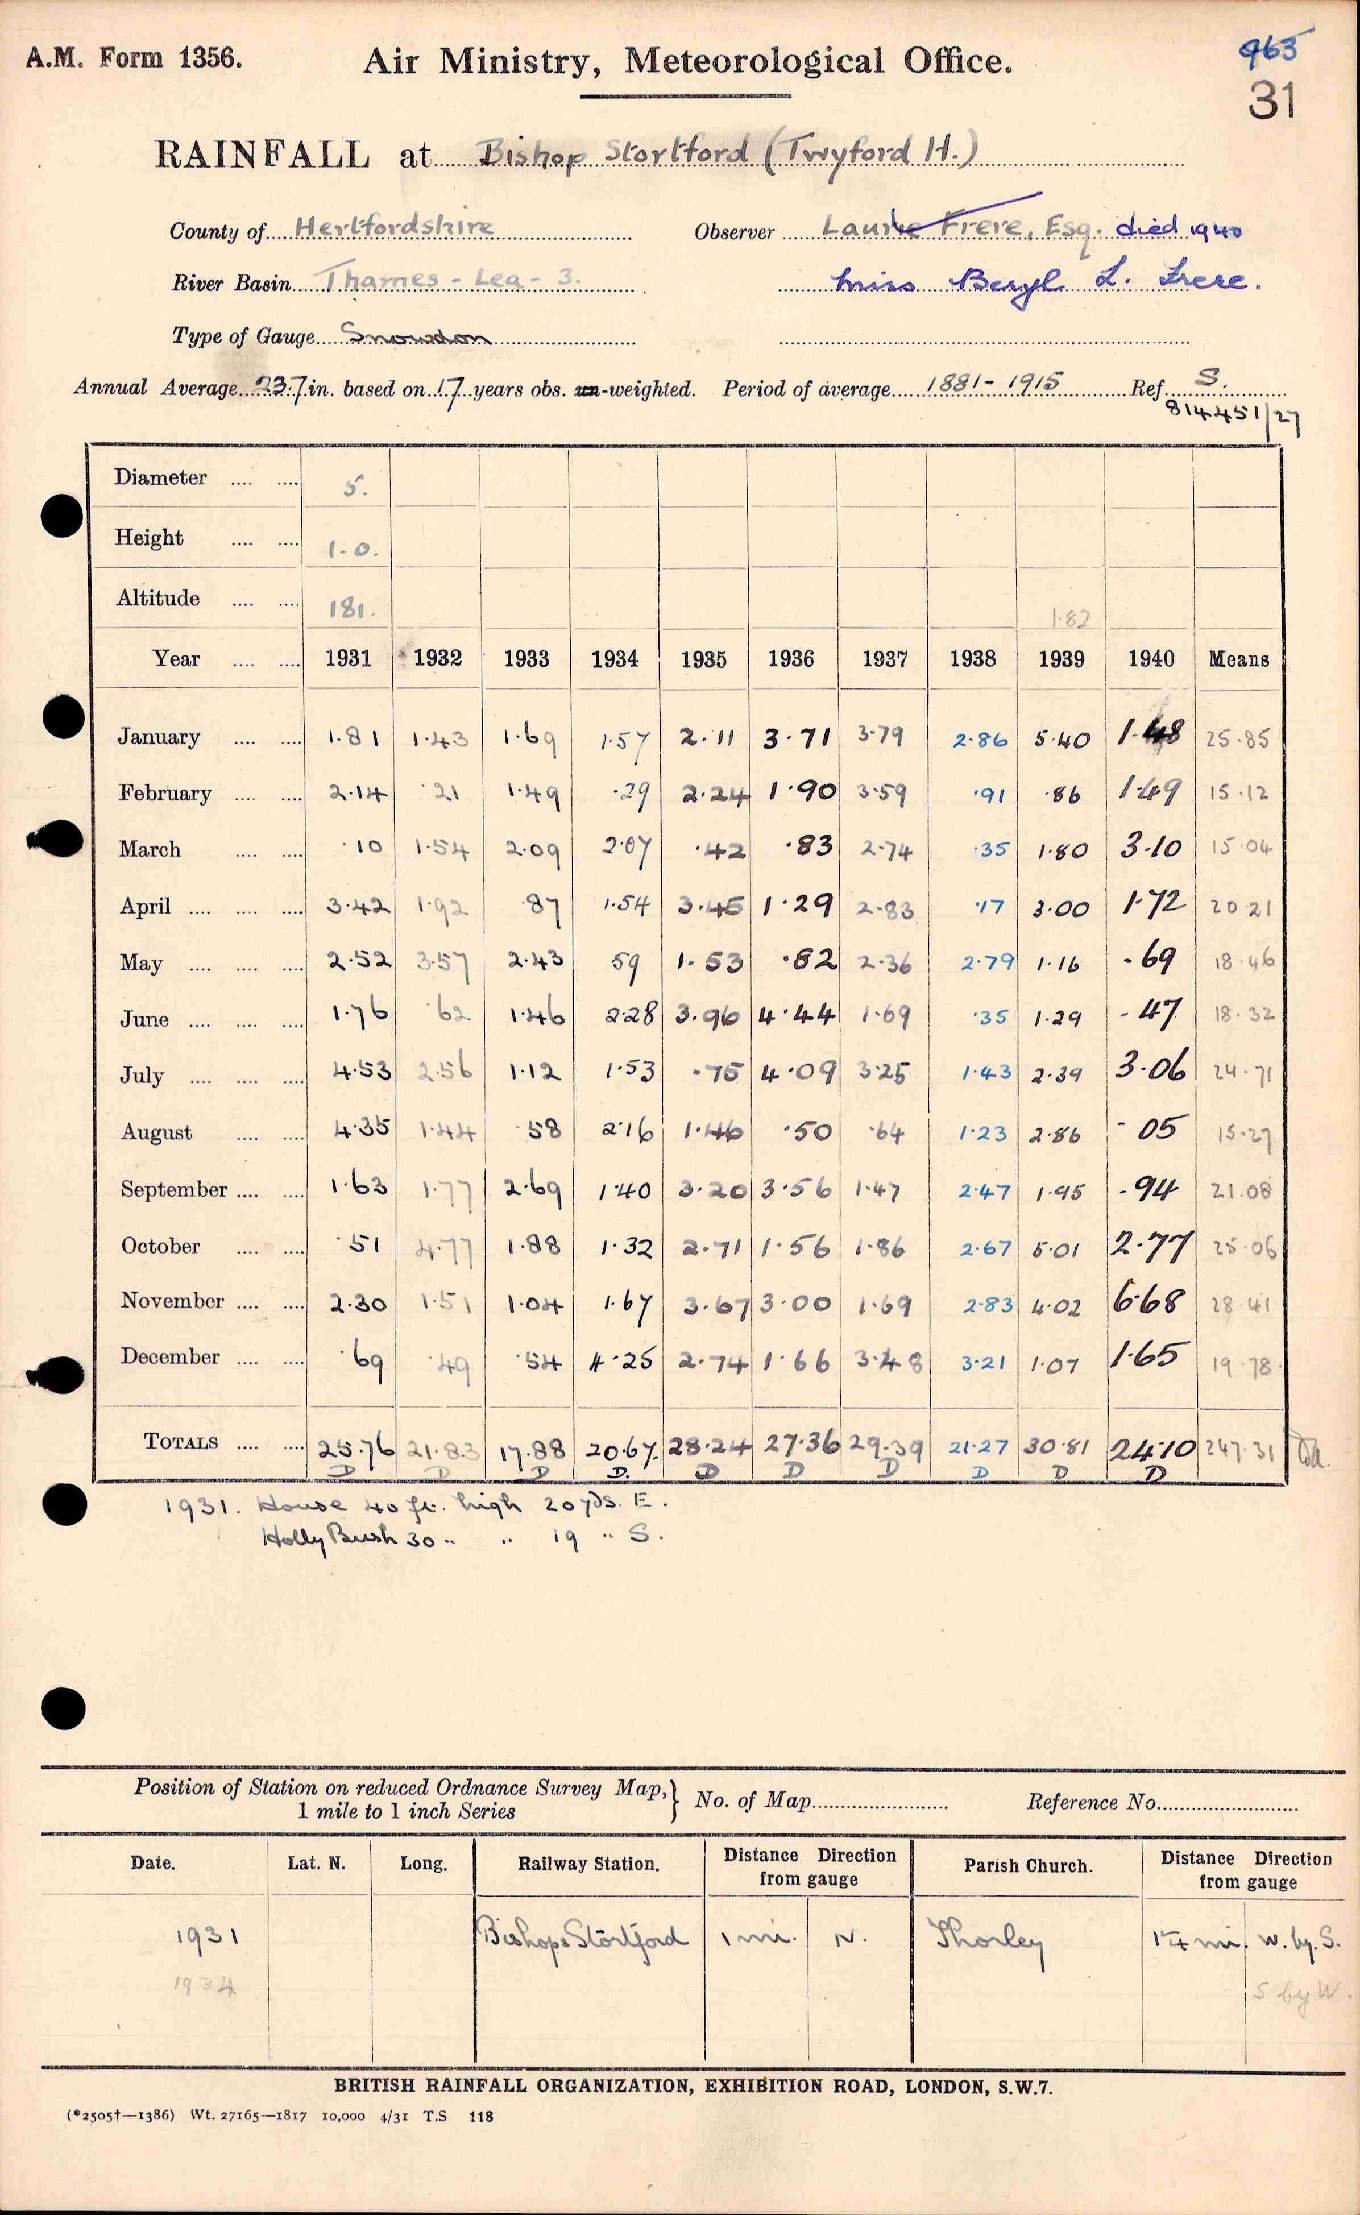 A.M. Form 1356. Air Ministry, Meteorological Office. 965
31
RAINFALL at Bishop Stortford (Twyford H.)
County of Hertfordshire Observer Laurie Frere, Esq. died 1940
River Basin Thames - Lea - 3. Miss Beryl L. Frere.
Type of Gauge Snowdon
Annual Average 23.7 in. based on 17 years obs. un-weighted. Period of average 1881-1915 Ref. S.
814451/27
Diameter 5.
Height 1.0.
Altitude 181. 182
Year 1931 1932 1933 1934 1935 1936 1937 1938 1939 1940 Means
January 1.81 1.43 1.69 1.57 2.11 3.71 3.79 2.86 5.40 1.48 25.85
February 2.14 .21 1.49 .29 2.24 1.90 3.59 .91 .86 1.49 15.12
March .10 1.54 2.09 2.07 .42 .83 2.74 .35 1.80 3.10 15.04
April 3.42 1.92 .87 1.54 3.45 1.29 2.83 .17 3.00 1.72 20.21
May 2.52 3.57 2.43 .59 1.53 .82 2.36 2.79 1.16 .69 18.46
June 1.76 .62 1.46 2.28 3.96 4.44 1.69 .35 1.29 .47 18.32
July 4.53 2.56 1.12 1.53 .75 4.09 3.25 1.43 2.39 3.06 24.71
August 4.35 1.44 .58 2.16 1.46 .50 .64 1.23 2.86 .05 15.27
September 1.63 1.77 2.69 1.40 3.20 3.56 1.47 2.47 1.95 .94 21.08
October .51 4.77 1.88 1.32 2.71 1.56 1.86 2.67 5.01 2.77 25.06
November 2.30 1.51 1.04 1.67 3.67 3.00 1.69 2.83 4.02 6.68 28.41
December .69 .49 .54 4.25 2.74 1.66 3.48 3.21 1.07 1.65 19.78
TOTALS 25.76 21.83 17.88 20.67. 28.24 27.36 29.39 21.27 30.81 24.10 247.31
D D D D. D D D D D D
1931. House 40 ft. high 20 yds. E.
Holly Bush 30 " " 19 " S.
Position of Station on reduced Ordnance Survey Map, } No. of Map Reference No.
1 mile to 1 inch Series
Date. Lat. N. Long. Railway Station. Distance Direction from gauge Parish Church. Distance Direction from gauge
1931 Bishops Stortford 1 mi. N. Thorley 1¼ mi. W. by. S.
1934 S by W.
BRITISH RAINFALL ORGANIZATION, EXHIBITION ROAD, LONDON, S.W.7.
(*2505†—1386) Wt. 27165—1817 10,000 4/31 T.S 118